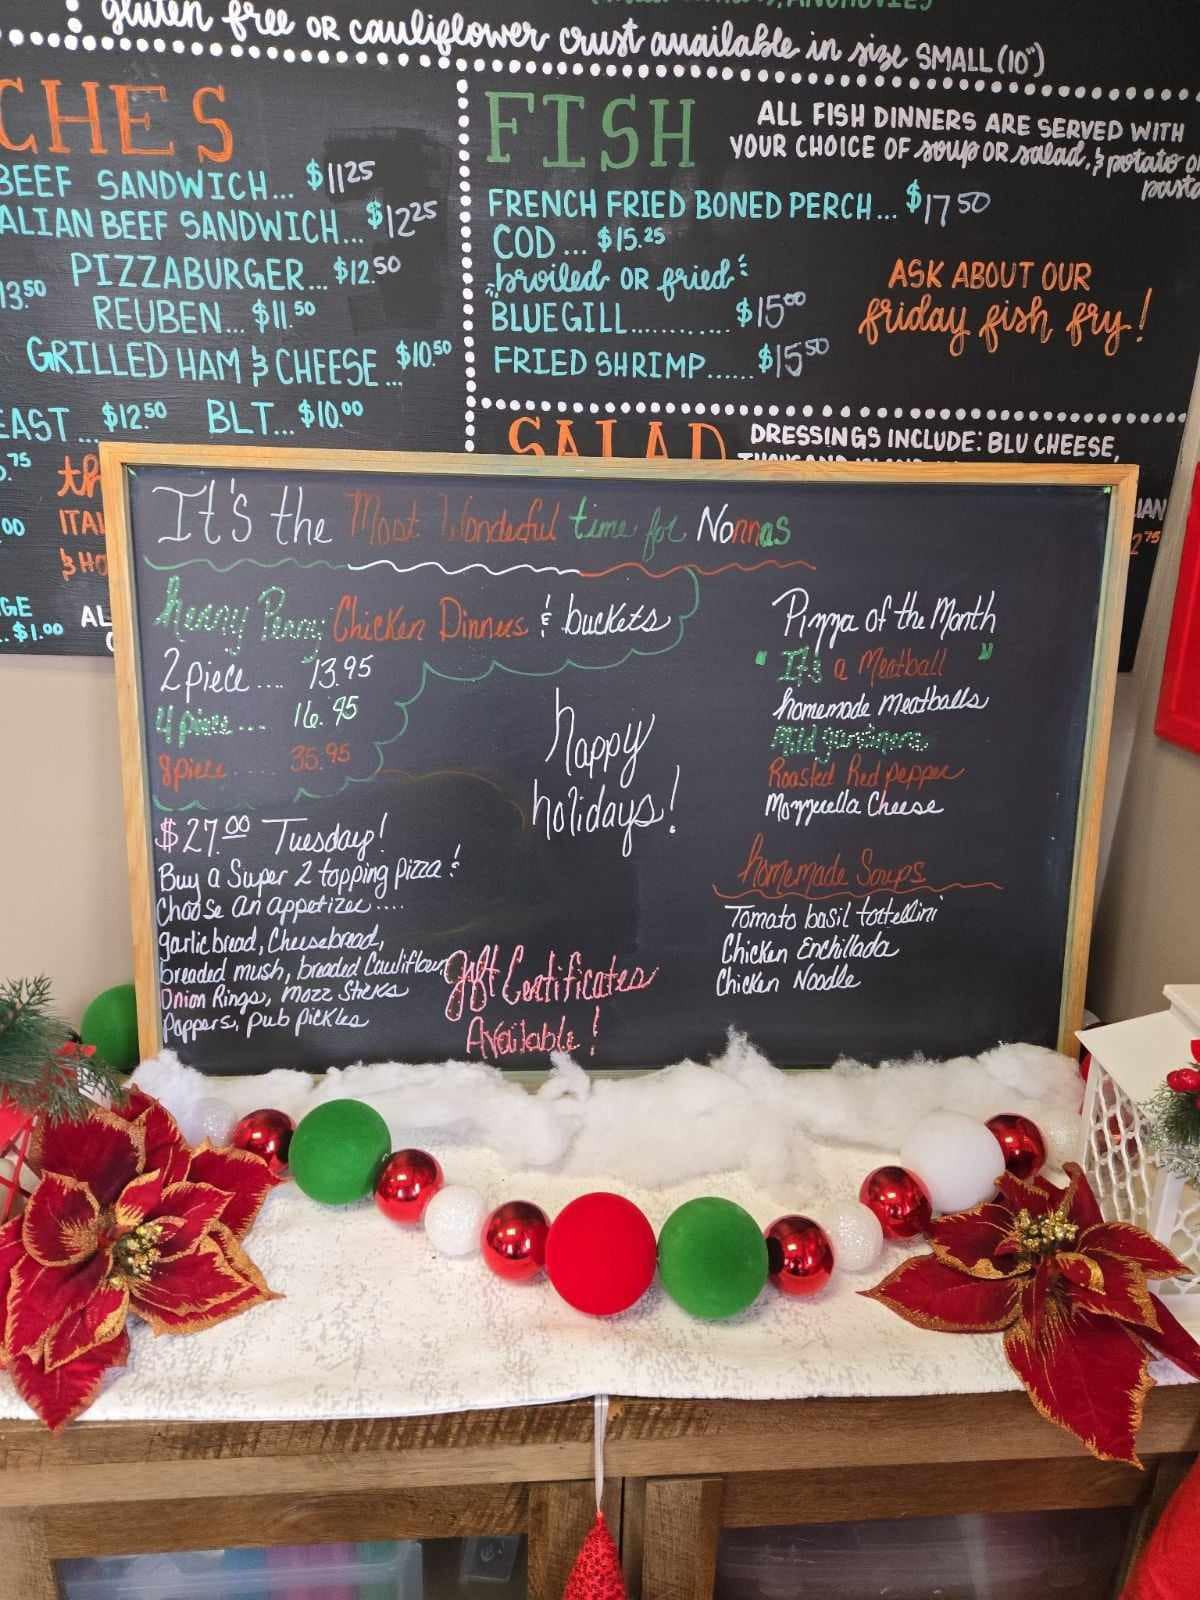 gluten free OR cauliflower crust available in size SMALL (10")
CHES
BEEF SANDWICH... $11.25
ALIAN BEEF SANDWICH... $12.25
PIZZABURGER... $12.50
13.50
REUBEN... $11.50
GRILLED HAM & CHEESE... $10.50
EAST... $12.50 BLT... $10.00
.75
.00
ITAL
& HO
GE
... $1.00
AL
FISH
ALL FISH DINNERS ARE SERVED WITH
YOUR CHOICE OF soup OR salad, & potato or
pasta
FRENCH FRIED BONED PERCH... $17.50
COD... $15.25
broiled OR fried
BLUEGILL........... $15.00
FRIED SHRIMP...... $15.50
ASK ABOUT OUR
friday fish fry!
SALAD
DRESSINGS INCLUDE: BLU CHEESE,
IAN
It's the Most Wonderful time for Nonnas
henny Penny Chicken Dinners & buckets
2 piece .... 13.95
4 piece .... 16.95
8 piece ..... 35.95
$27.00 Tuesday!
Buy a Super 2 topping pizza &
Choose an appetizer ....
garlic bread, Cheesebread,
breaded mush, breaded Cauliflower
Onion Rings, Mozz Sticks
Poppers, pub pickles
happy
holidays!
Gift Certificates
Available!
Pizza of the Month
"It's a Meatball"
homemade meatballs
Mild giardinera
Roasted Red pepper
Mozzuella Cheese
homemade Soups
Tomato basil tortellini
Chicken Enchillada
Chicken Noodle